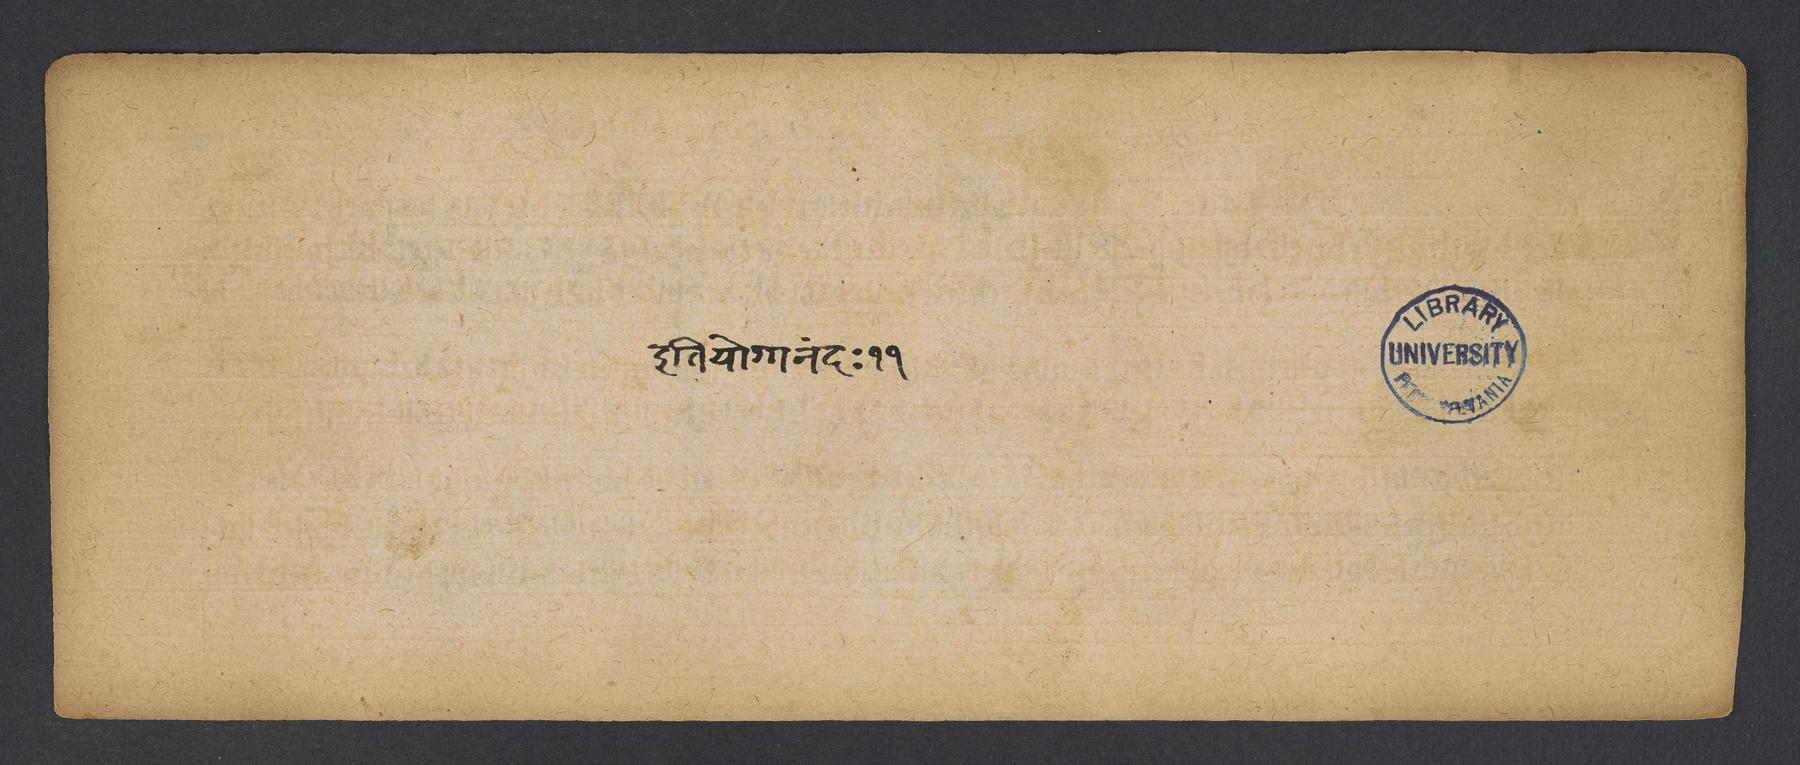 इतियोगानंदः११
LIBRARY
UNIVERSITY